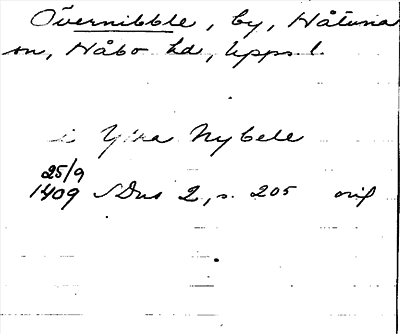 Övernibble, by, Håtuna
sn, Håbo hd, Upps l.
i Yttra Nybele
25/9
1409 SDns 2, s. 205 orig